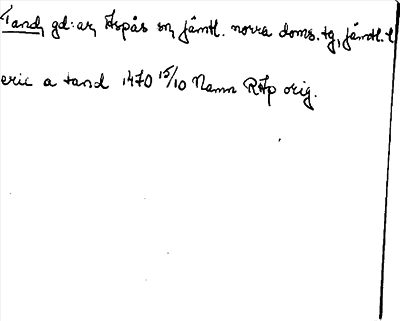 Tand, gd:ar, Aspås sn, Jämtl. norra doms. tg, Jämtl. l
eric a tand 1470 15/10 Namn RAp orig.